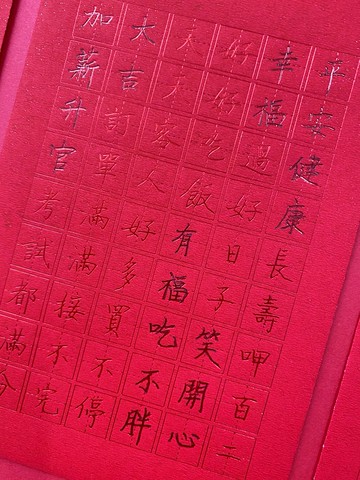 平安健康長壽呷百二
幸福過好日子笑開心
好好吃飯有福吃不胖
天天客人好多買不停
大吉訂單滿滿接不完
加薪升官考試都滿分